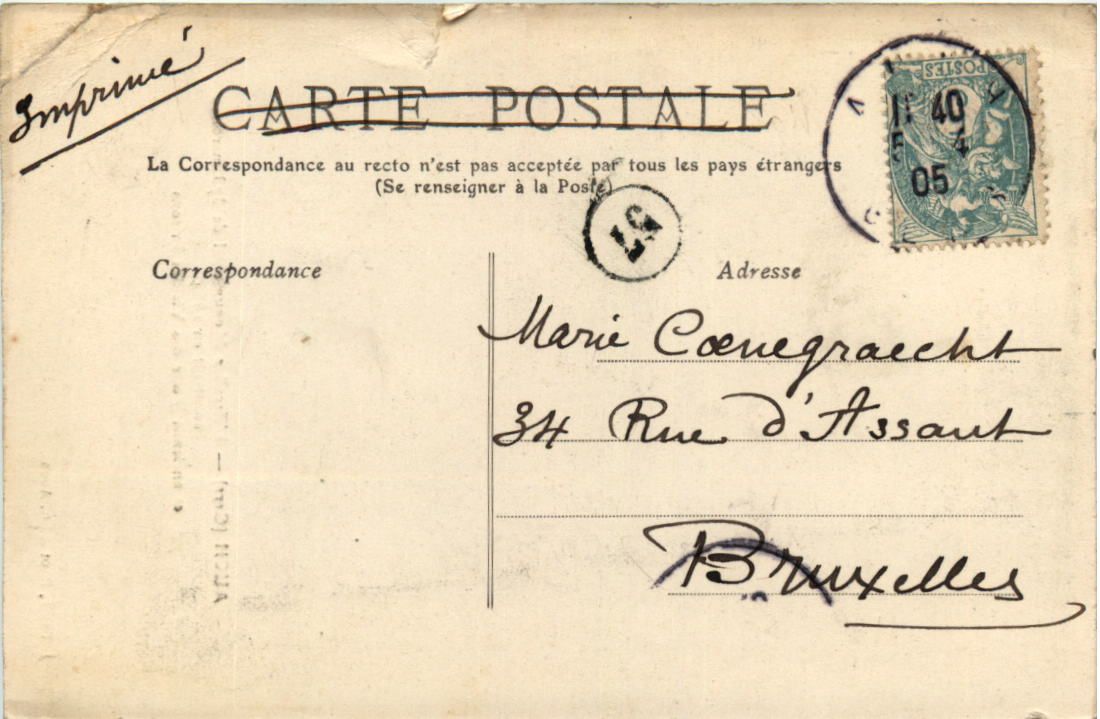 Imprimé
CARTE POSTALE
La Correspondance au recto n'est pas acceptée par tous les pays étrangers
(Se renseigner à la Poste)
POSTES
40
4
05
57
Correspondance
Adresse
Marie Coenegraecht
34 Rue d'Assaut
Bruxelles
AUCH (Gers)